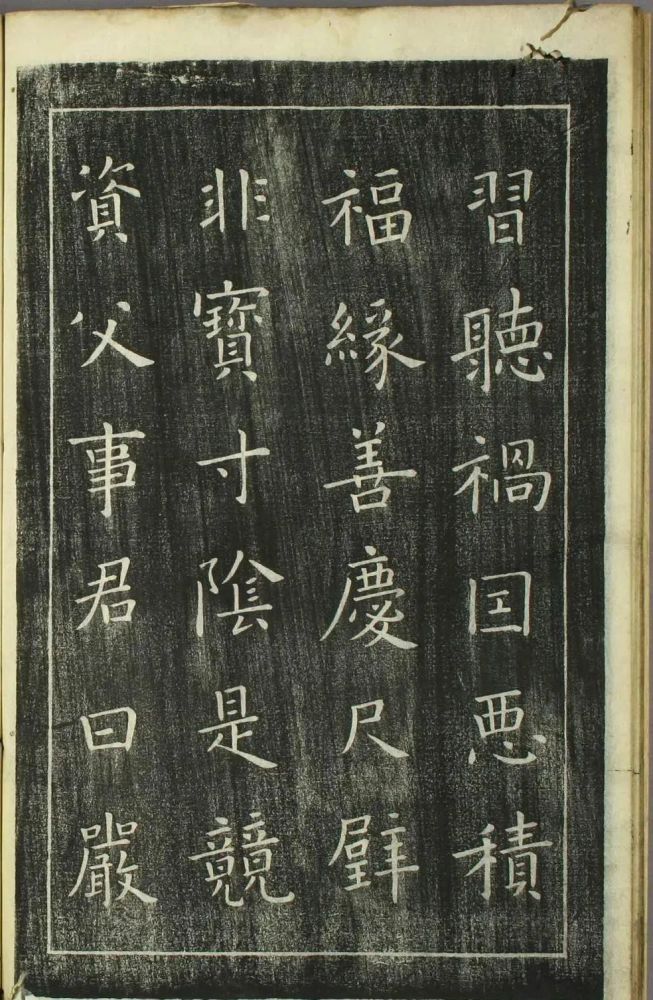 習聽禍囙悪積
福緣善慶尺璧
非寶寸陰是競
資父事君曰嚴